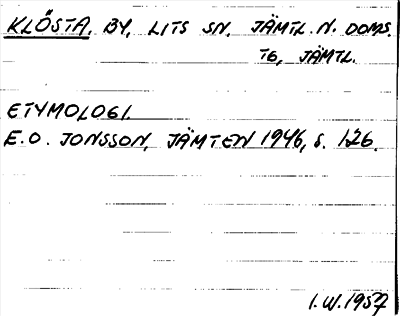 KLÖSTA, BY, LITS SN, JÄMTL. N. DOMS.
TG, JÄMTL.
ETYMOLOGI.
E.O. JONSSON, JÄMTEN 1946, S. 126.
I.W. 1957